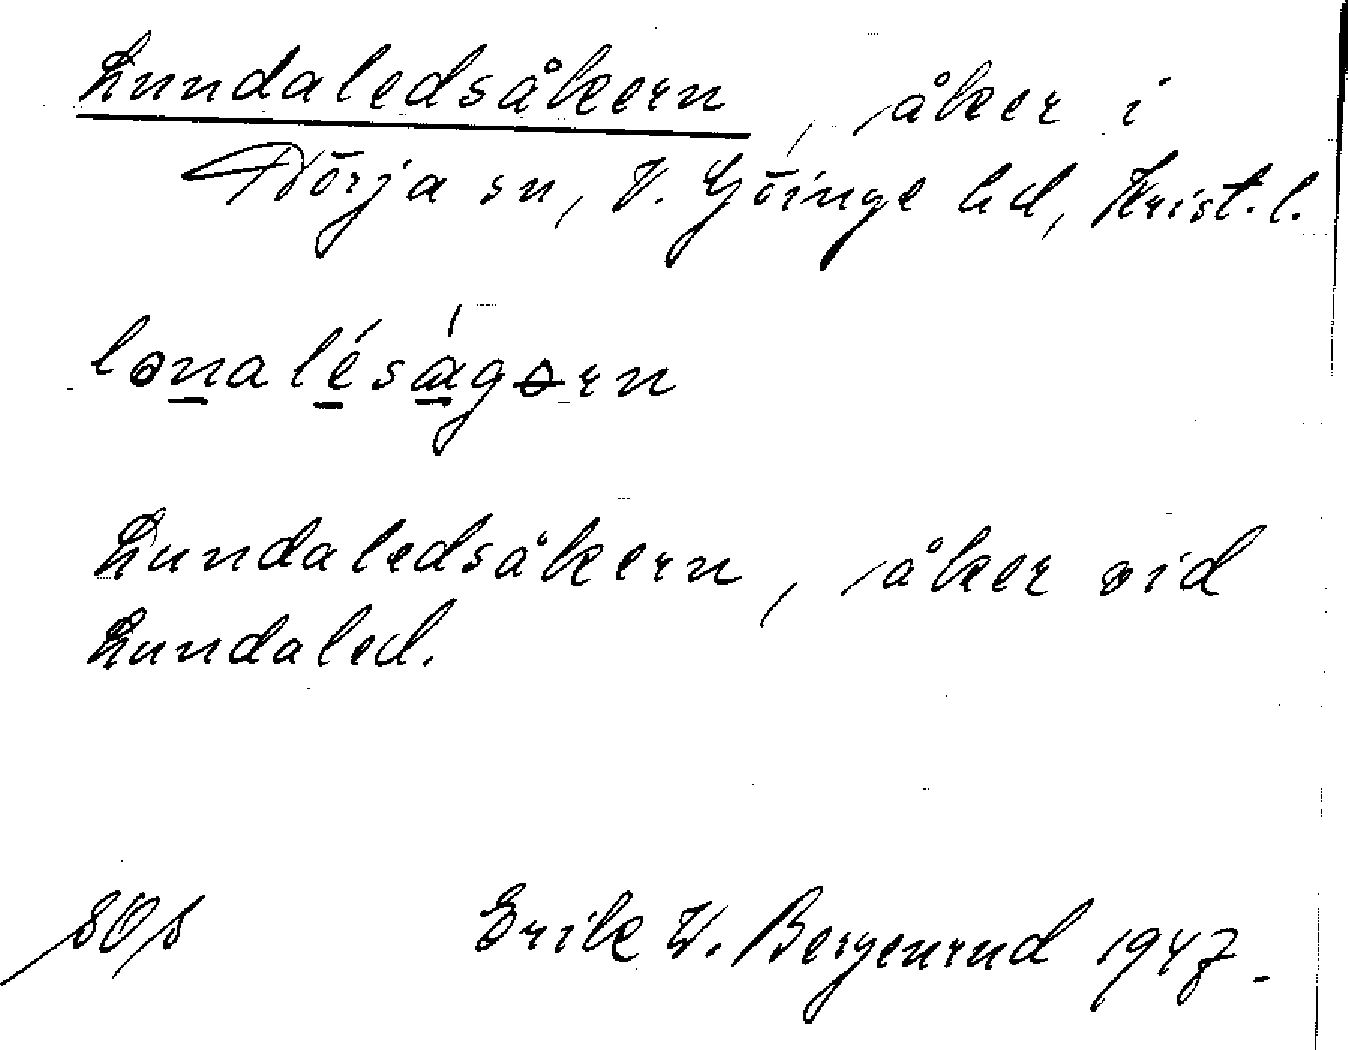 Lundaledsåkern, åker i
Nörja sn, V. Göinge hd, Krist. l.
lonalésågərn
Lundaledsåkern, åker vid
Lundaled.
Erik W. Bergenrud 1947.